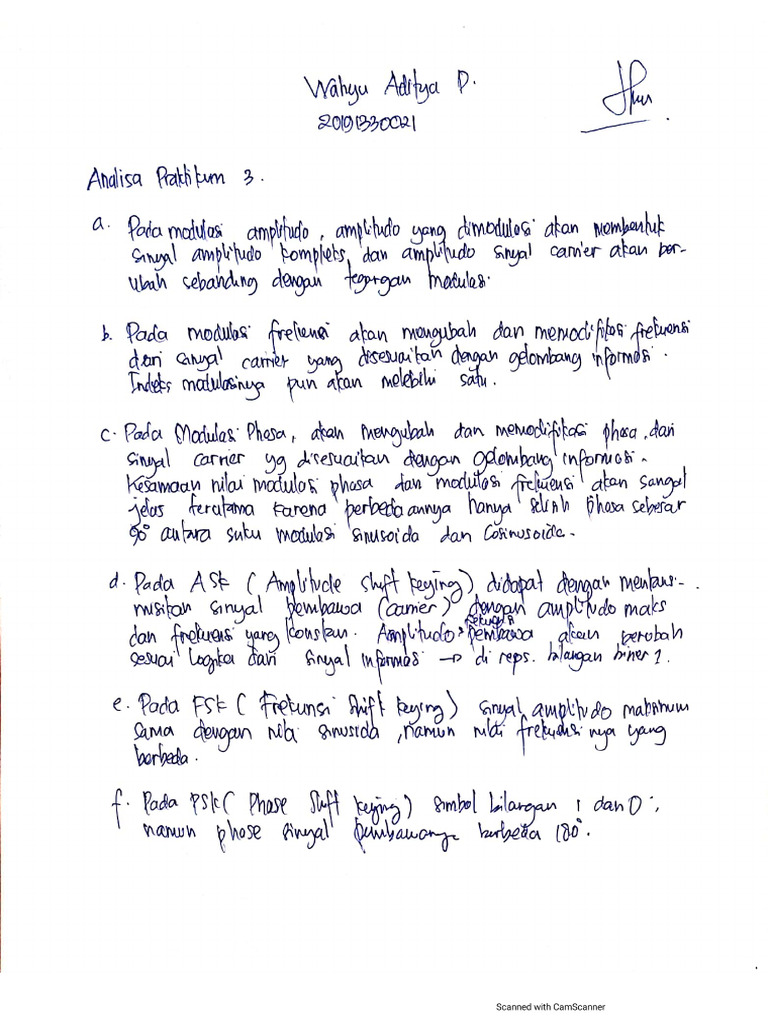 Wahyu Aditya P.
20191330021
Analisa Praktikum 3.
a. Pada modulasi amplitudo, amplitudo yang dimodulasi akan membentuk
sinyal amplitudo kompleks, dan amplitudo sinyal carrier akan ber-
ubah sebanding dengan tegangan modulasi.
b. Pada modulasi frekensi akan mengubah dan memodifikasi frekuensi
dari sinyal carrier yang disesuaikan dengan gelombang informasi.
Indeks modulasinya pun akan melebihi satu.
c. Pada Modulasi Phasa, akan mengubah dan memodifikasi phasa, dari
sinyal carrier yg disesuaikan dengan gelombang informasi.
Kesamaan nilai modulasi phasa dan modulasi frekuensi akan sangat
jelas terutama karena perbedaannya hanya selisih phasa sebesar
90° antara suku modulasi sinusoida dan Cosinusoida.
d. Pada ASK (Amplitude Shift Keying) didapat dengan mentans-
misikan sinyal pembawa (carrier) dengan amplitudo maks
dan frekuensi yang konstan. Amplitudo frekuensi pembawa akan berobah
sesuai logika dari sinyal informasi → di reps. bilangan biner 1.
e. Pada FSK (Frekunsi Shift Keying) sinyal amplitudo maksimum
sama dengan nilai sinusida, namun nilai frekuensi nya yang
berbeda.
f. Pada PSK (Phase Shift Keying) simbol bilangan 1 dan 0,
namun phase sinyal pembawanya berbeda 180°.
Scanned with CamScanner